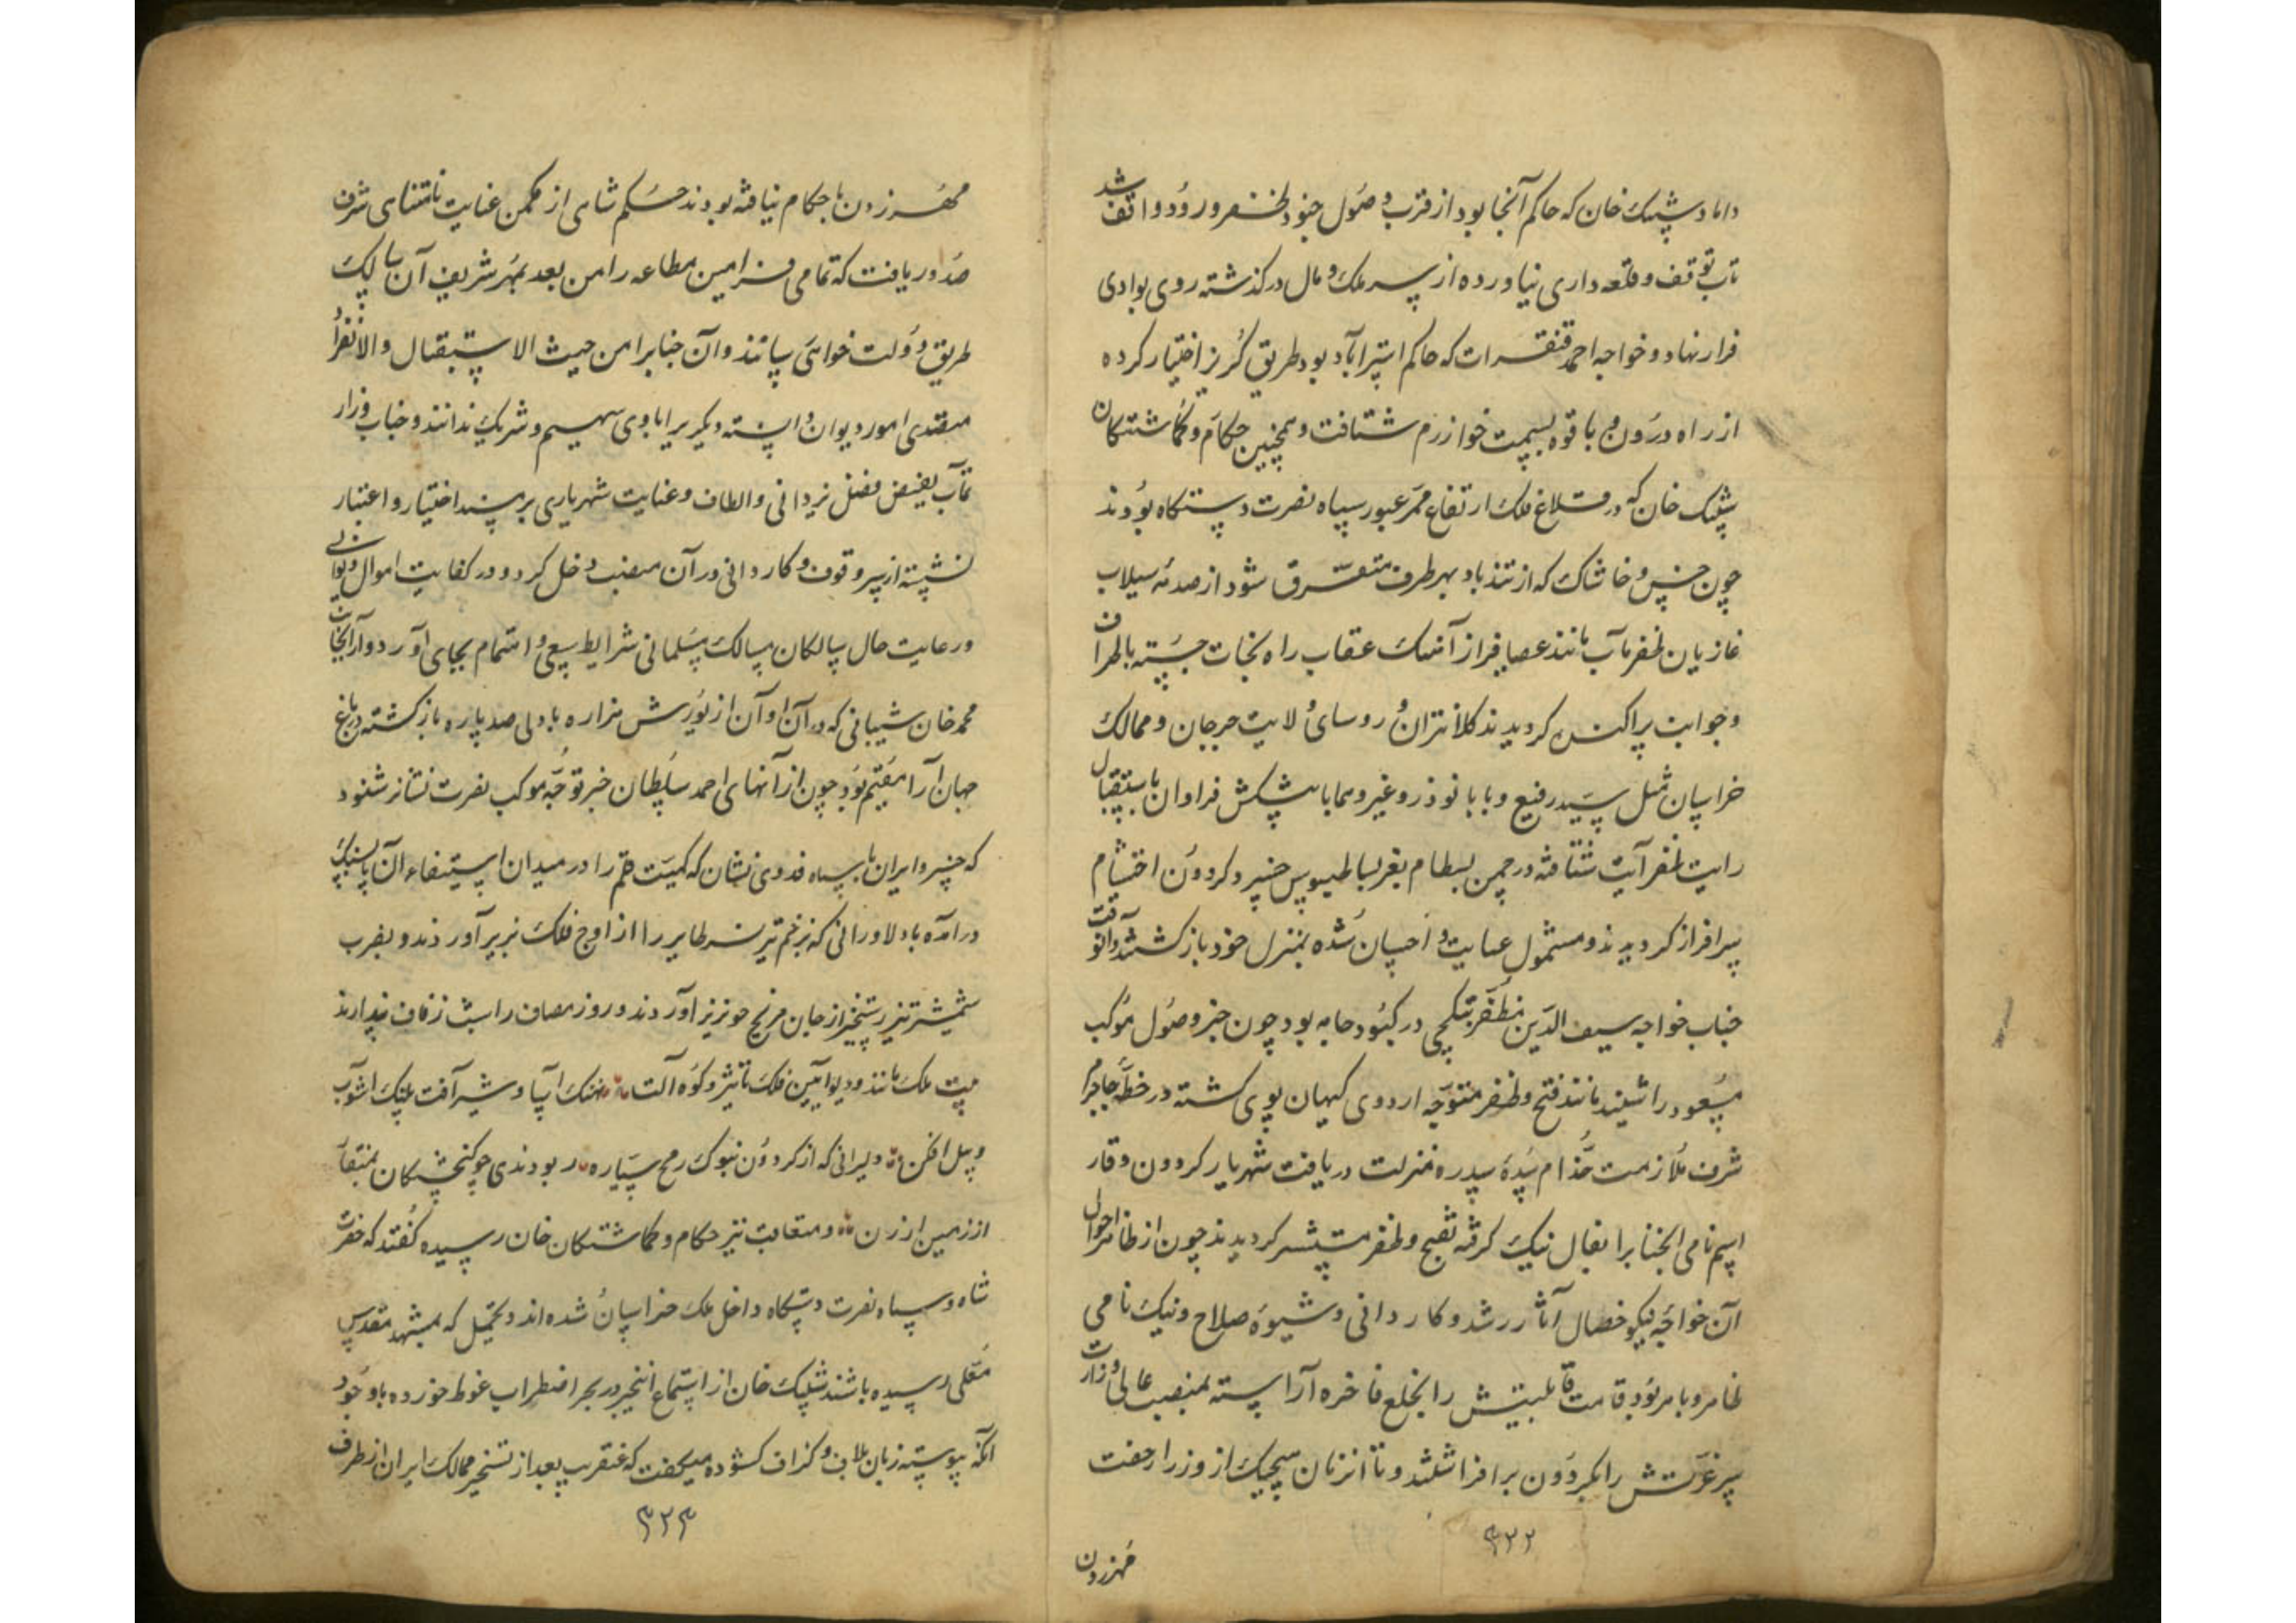 داماد شیبک خان که حاکم آنجا بود از قرب وصول جنود ظفر ورود واقف شد
تاب توقف و قلعه داری نیاورده از سر ملک و مال درگذشته روی بوادی
فرار نهاد و خواجه احمد قنقرات که حاکم استرآباد بود طریق گریز اختیار کرده
از راه درون و باقوه بسمت خوارزم شتافت و همچنین حکام و گماشتکان
شیبک خان که در قلاع فلک ارتفاع ممر عبور سپاه نصرت دستکاه بودند
چون خس و خاشاک که از تندباد بهر طرف متفرق شود از صدمه سیلاب
غازیان ظفر مآب مانند عصافیر از آهنک عقاب راه نجات جسته باطراف
و جوانب پراکنده کردیدند کلانتران و روسای ولایت جرجان و ممالک
خراسان مثل سید رفیع و بابا نوذر و غیر وهما با پیشکش فراوان باستقبال
رایت ظفر آیت شتافته در چمن بسطام بعز بساط بوس خسرو کردون احتشام
سرافراز کردیدند و مشمول عنایت و احسان شده بمنزل خود بازکشتند و آنوقت
جناب خواجه سیف الدین مظفر بتکچی در کبود جامه بود چون خبر وصول موکب
مسعود را شنید مانند فتح و ظفر متوجه اردوی کیهان پوی کشته در خطه جاجرم
شرف ملازمت خدام سده سدره منزلت دریافت شهریار کردون وقار
اسم نامی آنجنابرا بفال نیک کرفته بفتح و ظفر مستبشر کردیدند چون از ظاهر احوال
آن خواجه نیکو خصال آثار رشد و کاردانی و شیوه صلاح و نیک نامی
ظاهر و باهر بود قامت قابلیتش را بخلع فاخره آراسته بمنصب عالی وزارت
سر عزتش را بکردون برافراشتند و تا آنزمان هیچیک از وزرا رخصت
۳۲۲
مهر زدن
مهر زدن باحکام نیافته بودند حکم شاهی از مکمن عنایت نامتناهی شرف
صدور یافت که تمامی فرامین مطاعه را من بعد بمهر شریف آن سالک
طریق دولت خواهی رسانند و آن جنابرا من حیث الاستقبال والانفراد
متصدی امور دیوان دانسته دیکریرا باوی سهیم و شریک ندانند و جناب وزارت
مآب بفیض فضل یزدانی و الطاف و عنایت شهریاری بر مسند اختیار و اعتبار
نشسته از سر وقوف و کاردانی در آن منصب دخل کرد و در کفایت اموال دیوانی
و رعایت حال سالکان مسالک مسلمانی شرایط سعی و اهتمام بجای آورد و از آنجانب
محمد خان شیبانی که در آن اوان از یورش هزاره با دلی صد پاره بازکشته در باغ
جهان آرا مقیم بود چون از انهای احمد سلطان خبر توجه موکب نصرت نشانرا شنود
که خسرو ایران با سپاه فدوی نشان که کمیت همم را در میدان استیفاء آن
درآمده با دلاورانی که بزخم تیر نسر طایر را از اوج فلک بزیر آورند و بضرب
شمشیر تیز رستخیز از جان مریخ خونریز آورند و روز مصاف را شب زفاف پندارند
بیت ملک مانند و دیو آیین فلک تاثیر و کوه آلت نهنک آسا و شیر آفت پلنک آشوب
و پیل افکن دلیرانی که از کردون بنوک رمح سیاره ربودندی چو کنجشکان بمنقار
از زمین ارزن و متعاقب نیز حکام و کماشتکان خان رسیده کفتند که حضرت
شاه و سپاه نصرت دستکاه داخل ملک خراسان شده اند و یحتمل که بمشهد مقدس
معلی رسیده باشند شیبک خان از استماع اینخبر در بحر اضطراب غوطه خورده با وجود
آنکه پیوسته زبان بلاف و کزاف کشوده میکفت که عنقریب بعد از تسخیر ممالک ایران از طرف
۳۲۳